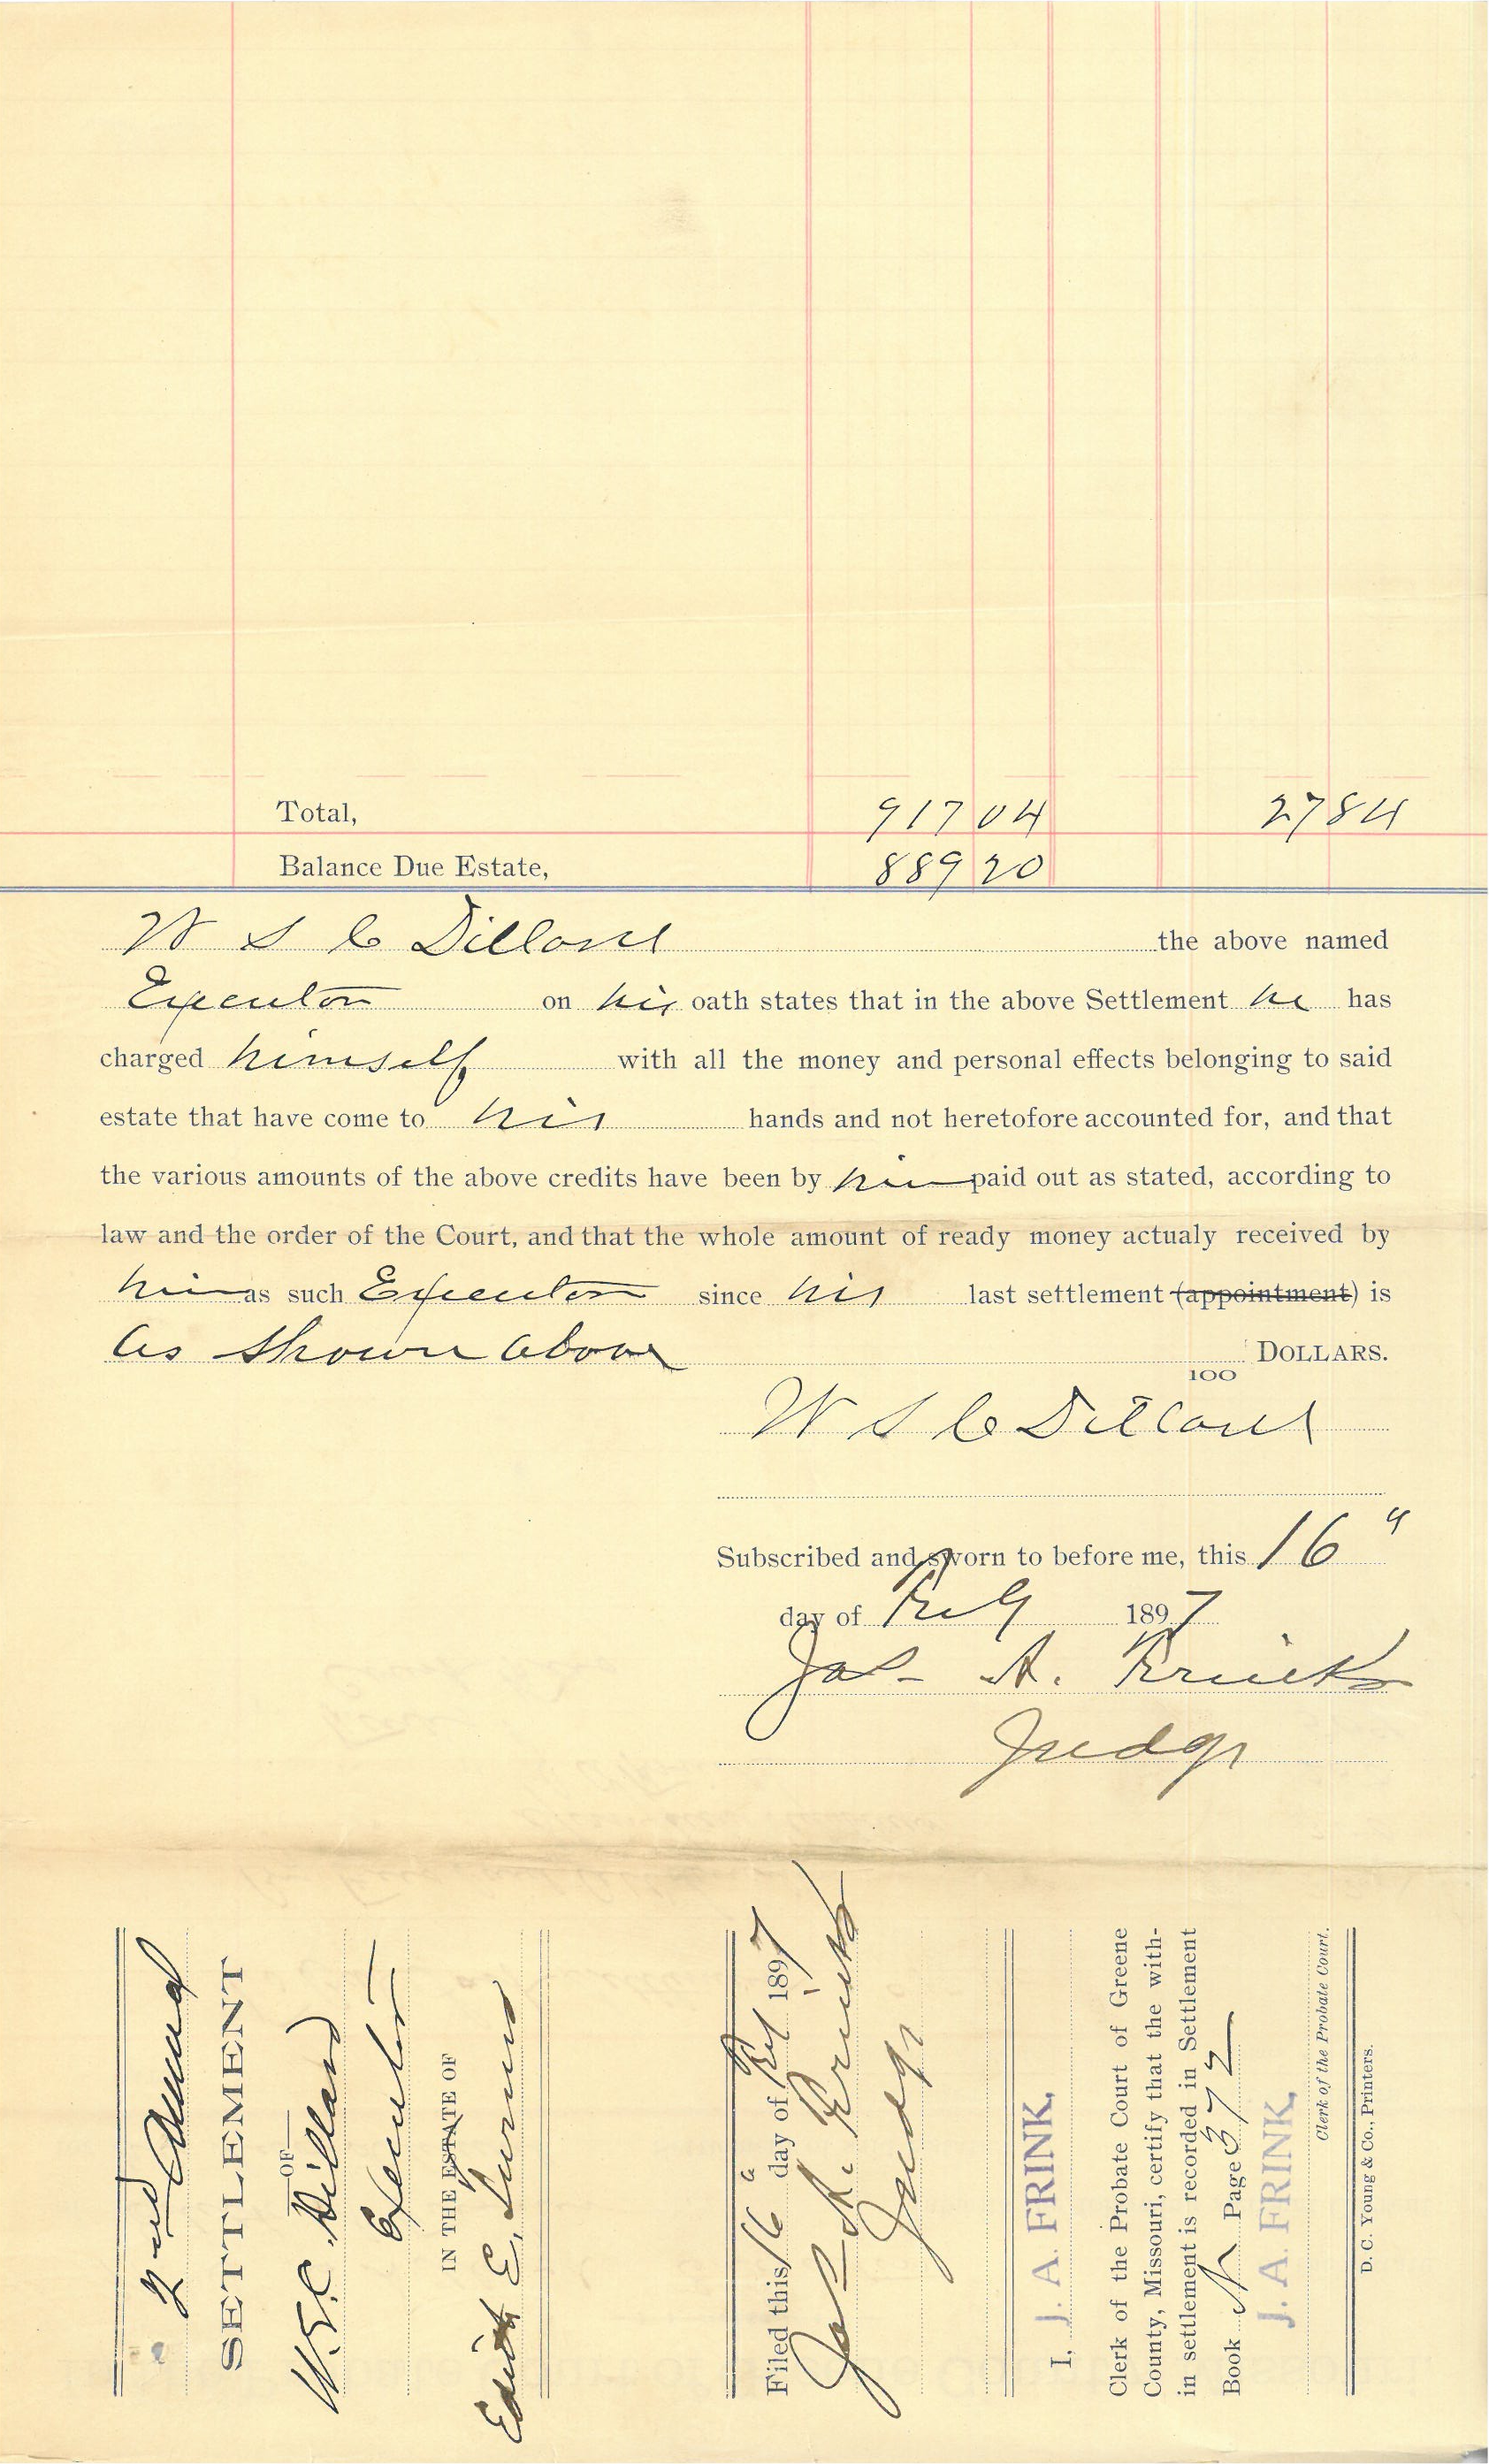 Total, 917 04 27 84
Balance Due Estate, 889 20
W S C Dillard the above named
Executor on his oath states that in the above Settlement he has
charged himself with all the money and personal effects belonging to said
estate that have come to his hands and not heretofore accounted for, and that
the various amounts of the above credits have been by him paid out as stated, according to
law and the order of the Court, and that the whole amount of ready money actualy received by
him as such Executor since his last settlement (appointment) is
As shown above DOLLARS.
100
W S C Dillard
Subscribed and sworn to before me, this 16"
day of Feb 1897
Jas. A. Frink
Judge
2nd Annual
SETTLEMENT
OF
W.S.C. Dillard
Executor
IN THE ESTATE OF
Edith E.
Filed this 16" day of Feb 1897
Jas A. Frink
Judge
I, J. A. FRINK,
Clerk of the Probate Court of Greene
County, Missouri, certify that the with-
in settlement is recorded in Settlement
Book N Page 372
J. A. FRINK,
Clerk of the Probate Court.
D. C. Young & Co., Printers.